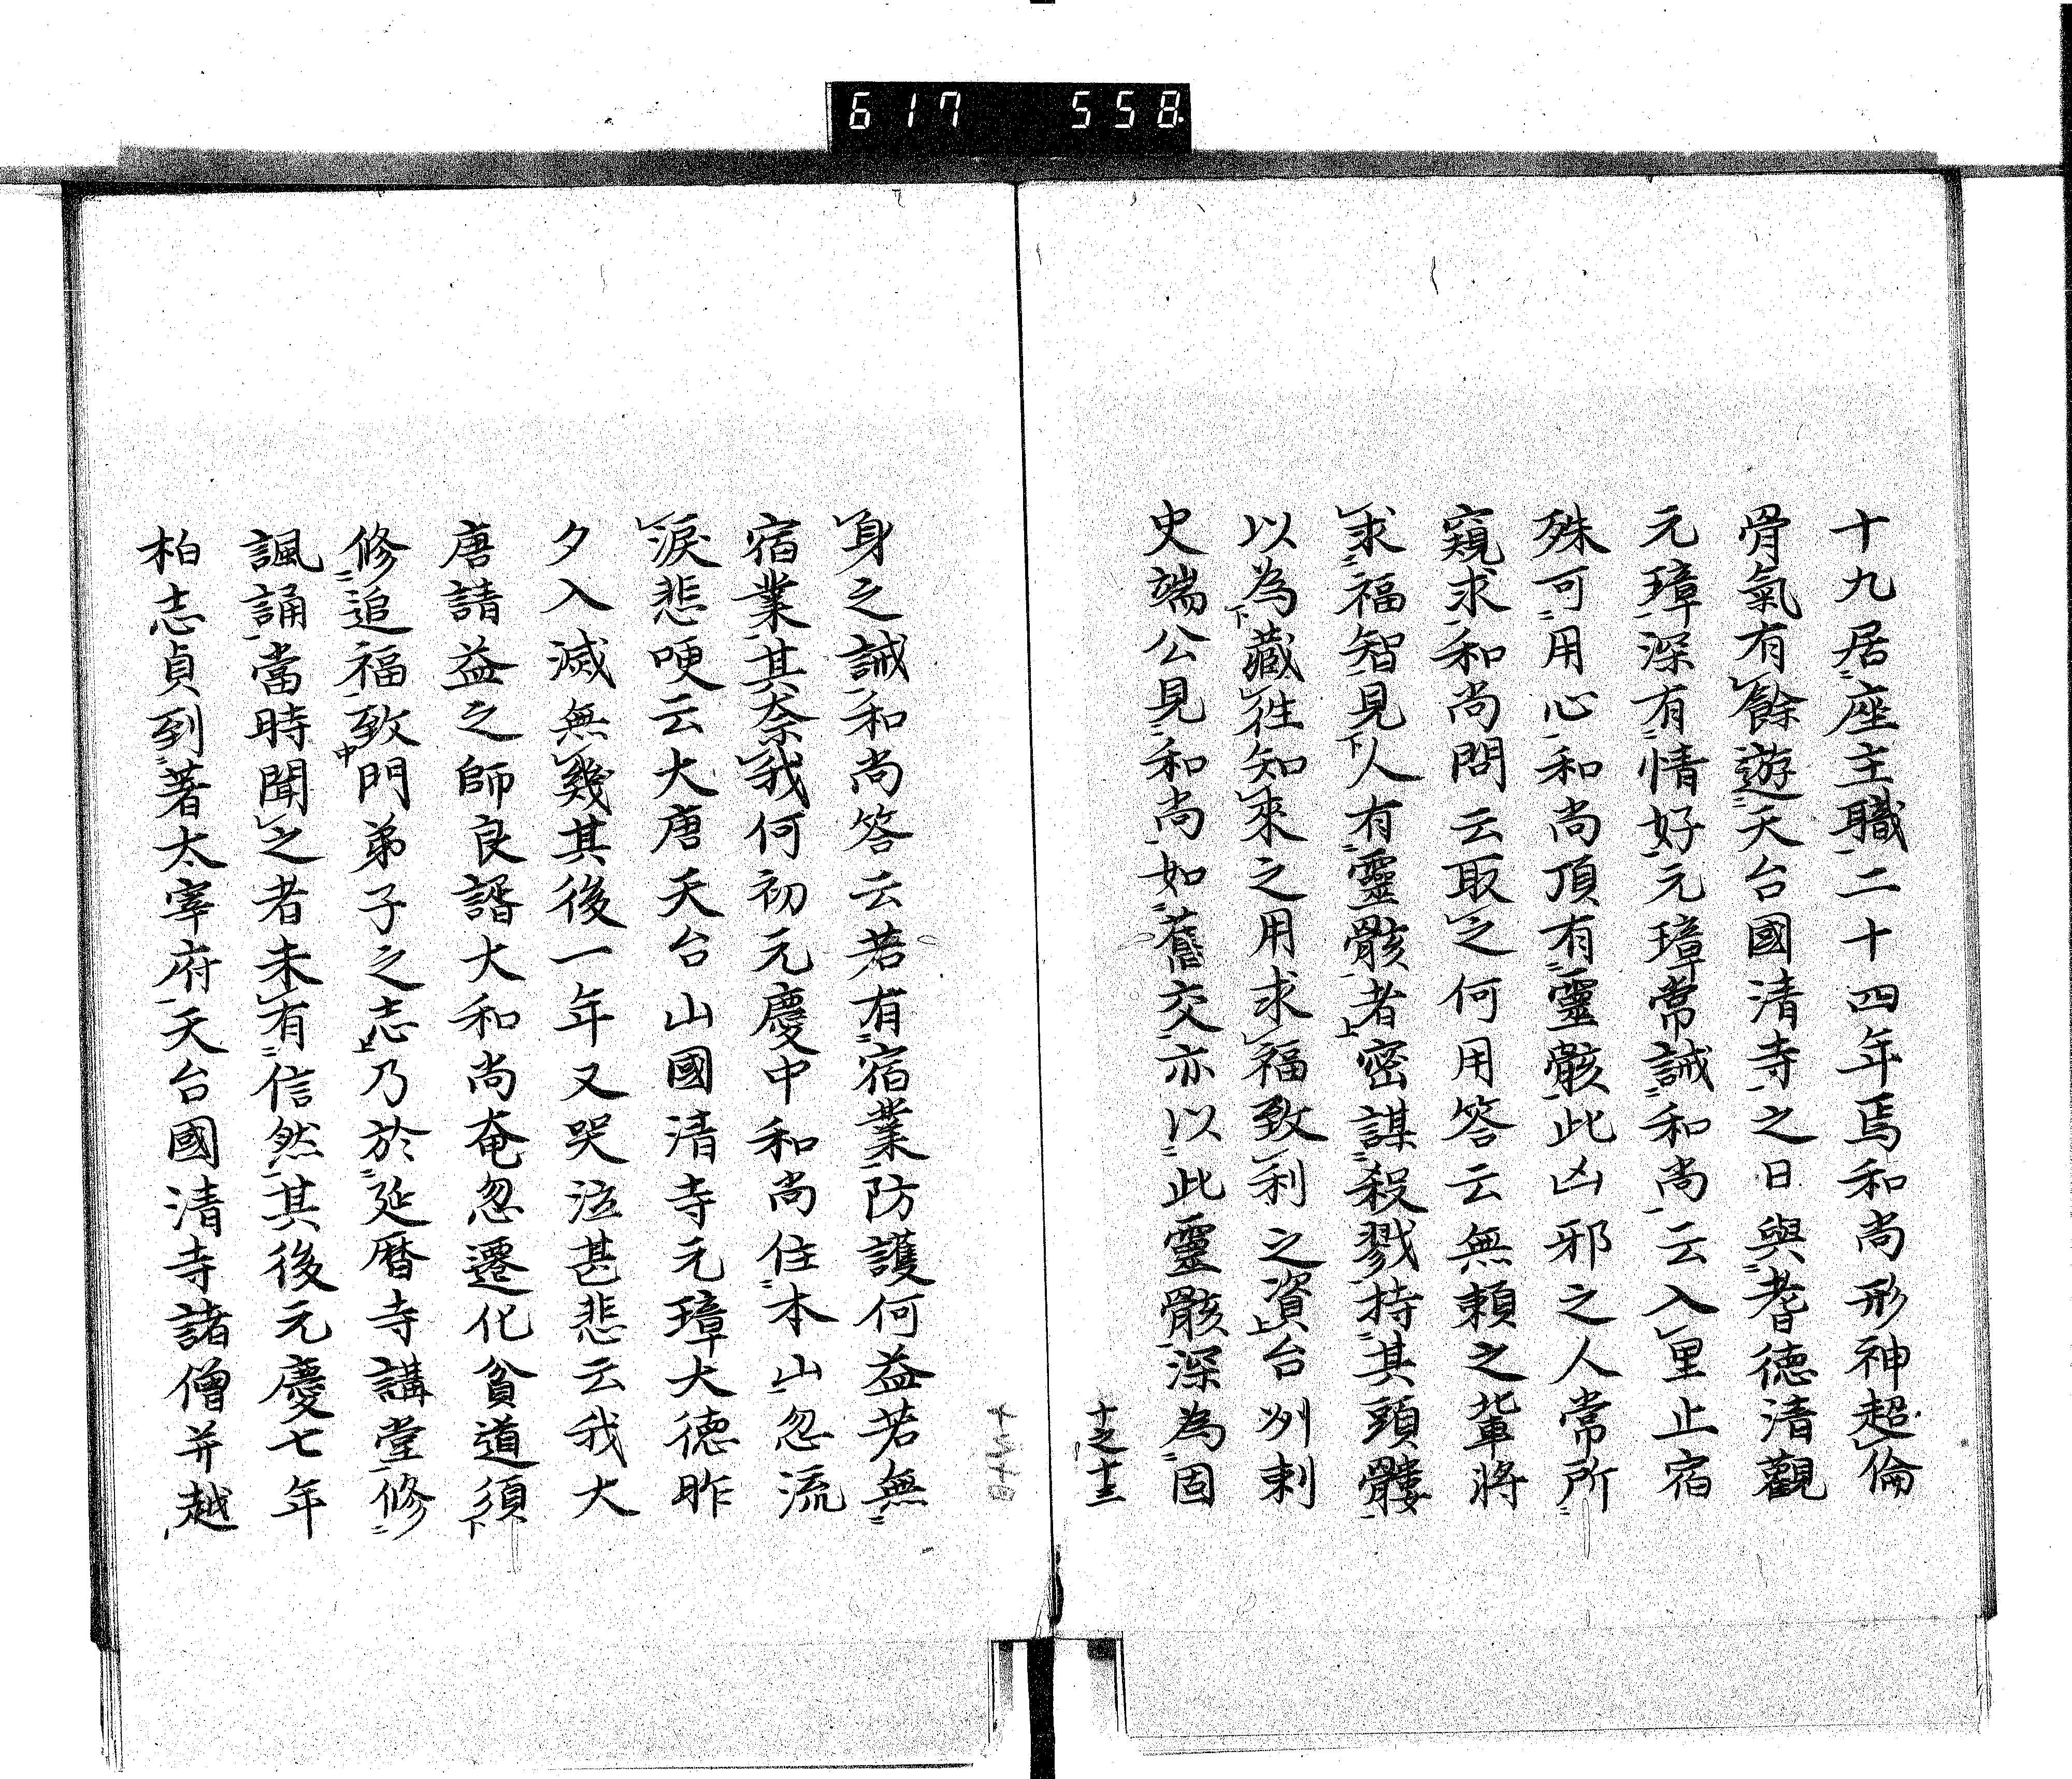 617 558.
十九居座主職二十四年焉和尚形神超倫
骨氣有餘遊天台國清寺之日與耆徳清觀
元璋深有情好元璋常誡和尚云入里止宿
殊可用心和尚頂有靈骸此凶邪之人常所
窺求和尚問云取之何用答云無頼之輩將
求福智見人有靈骸者密謀殺戮持其頭髏
以為藏往知來之用求福致利之資台州刺
史端公見和尚如舊交亦以此靈骸深為固
十之十三
身之誡和尚答云若有宿業防護何益若無
宿業其奈我何初元慶中和尚住本山忽流
淚悲哽云大唐天台山國清寺元璋大徳昨
夕入滅無幾其後一年又哭泣甚悲云我大
唐請益之師良諝大和尚奄忽遷化貧道須
修追福致門弟子之志乃於延暦寺講堂修
諷誦當時聞之者未有信然其後元慶七年
柏志貞到著太宰府天台國清寺諸僧并越